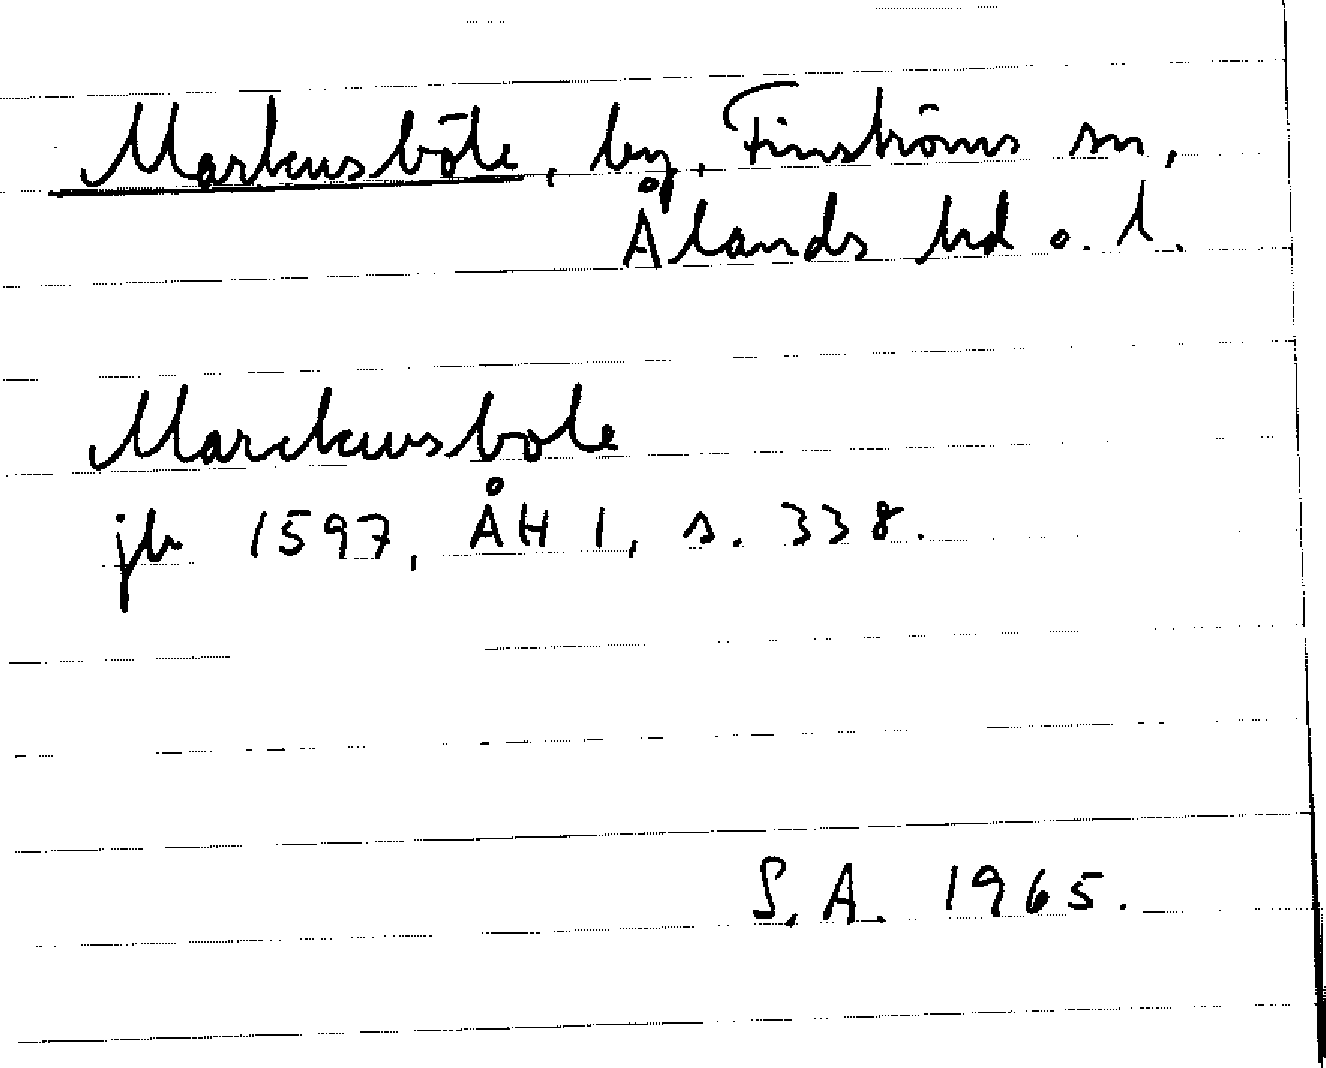 Markusböle, by, Finströms sn,
Ålands hd o. l.
Marckusbole
jb 1597, ÅH 1, s. 338.
S. A. 1965.